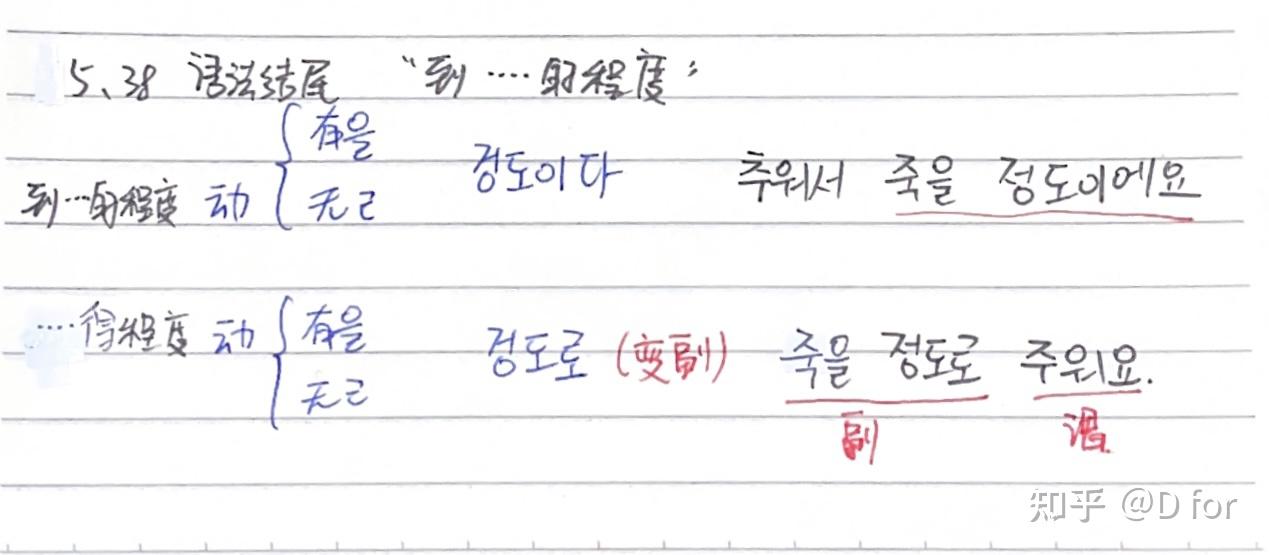 5、38 语法结尾 “到……的程度”
到…的程度 动 { 有을 정도이다 추워서 죽을 정도이에요
无ㄹ
……得程度 动 { 有을 정도로 (变副) 죽을 정도로 주워요.
无ㄹ
副 谓
知乎 @D for